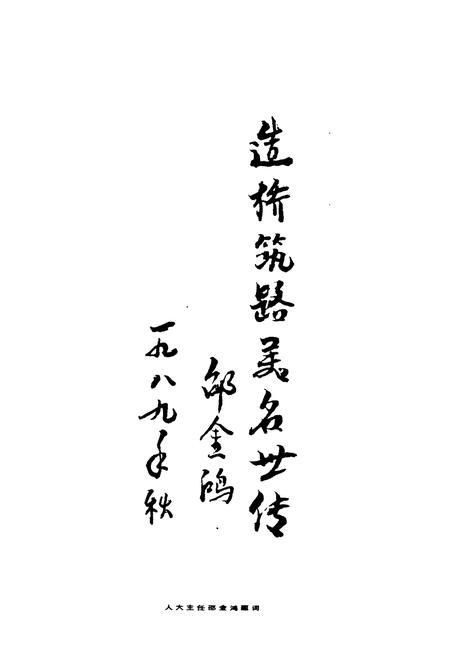 造桥筑路美名世传
邵金鸿
一九八九年秋
人大主任邵金鸿题词